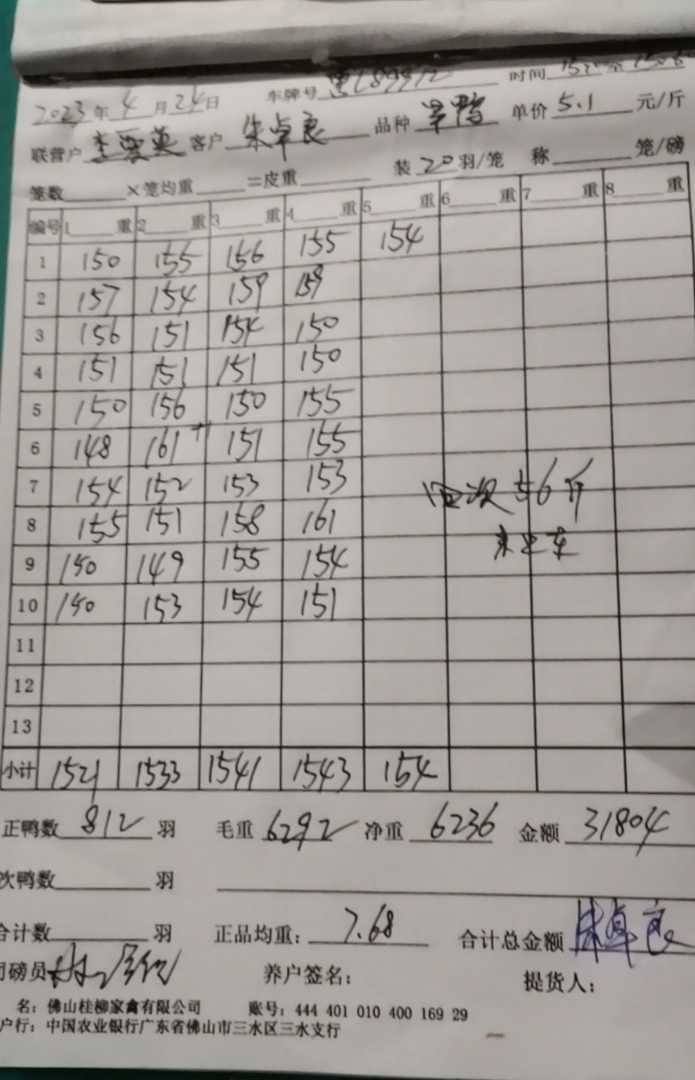 2023年4月24日 车牌号 时间
联营户 客户 朱卓良 品种 单价 5.1 元/斤
笼数 ×笼均重 =皮重 装 20 羽/笼 称 笼/磅
编号 1 重 2 重 3 重 4 重 5 重 6 重 7 重 8 重
1 150 155 156 155 154
2 157 154 159 159
3 156 151 154 150
4 151 151 151 150
5 150 156 150 155
6 148 161 +1 151 155
7 154 152 153 153
8 155 151 158 161
9 150 149 155 154
10 150 153 154 151
56斤
11
12
13
小计 1521 1533 1541 1543 154
正鸭数 812 羽 毛重 6292 净重 6236 金额 31804
次鸭数 羽
合计数 羽 正品均重: 7.68 合计总金额 朱卓良
司磅员 养户签名: 提货人:
名: 佛山桂柳家禽有限公司 账号: 444 401 010 400 169 29
户行: 中国农业银行广东省佛山市三水区三水支行